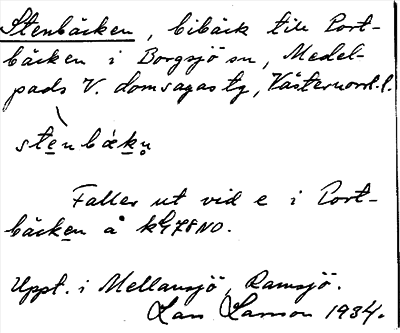 Stenbäcken, bibäck till Port-
bäcken i Borgsjö sn, Medel-
pads V. domsagas tg, Västernorrl. l.
stènbäkn̥
Faller ut vid e i Port-
bäcken å kbl 78 NO.
Uppt. i Mellansjö, Ramsjö.
Lars Larson 1934.